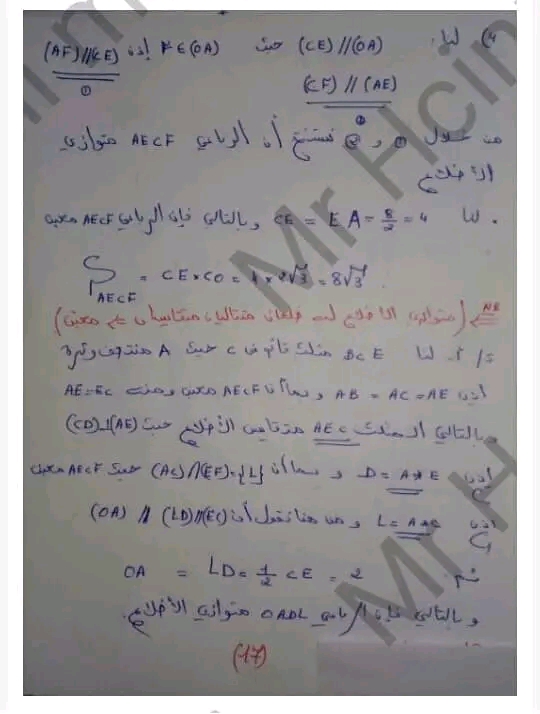 4) لنا: (CE) // (OA) حيث F ∈ (OA) إذن (AF) // (CE) ①
(CF) // (AE) ②
من خلال ① و ② نستنتج أن الرباعي AECF متوازي
الأضلاع
. لنا CE = EA = 8/2 = 4 وبالتالي فإن الرباعي AECF معين
S AECF = CE × CO = 4 × 2√3 = 8√3
NB (متوازي الأضلاع له ضلعان متتاليان متقايسان هو معين)
أ. لنا BCE مثلث قائم في C حيث A منتصف وتره
إذن AB = AC = AE وبما أن AECF معين ومنه AE = EC
وبالتالي المثلث AEC متقايس الأضلاع حيث (CD) ⊥ (AE)
إذن D = A * E وبما أن (AC) ∩ (EF) = {L} حيث AECF معين
إذن L = A * C ومن هنا نقول أن (OA) // (LD) // (EC)
ثم OA = LD = 1/2 CE = 2
وبالتالي فإن الرباعي OADL متوازي الأضلاع.
(17)
Mr Hcin
Mr H